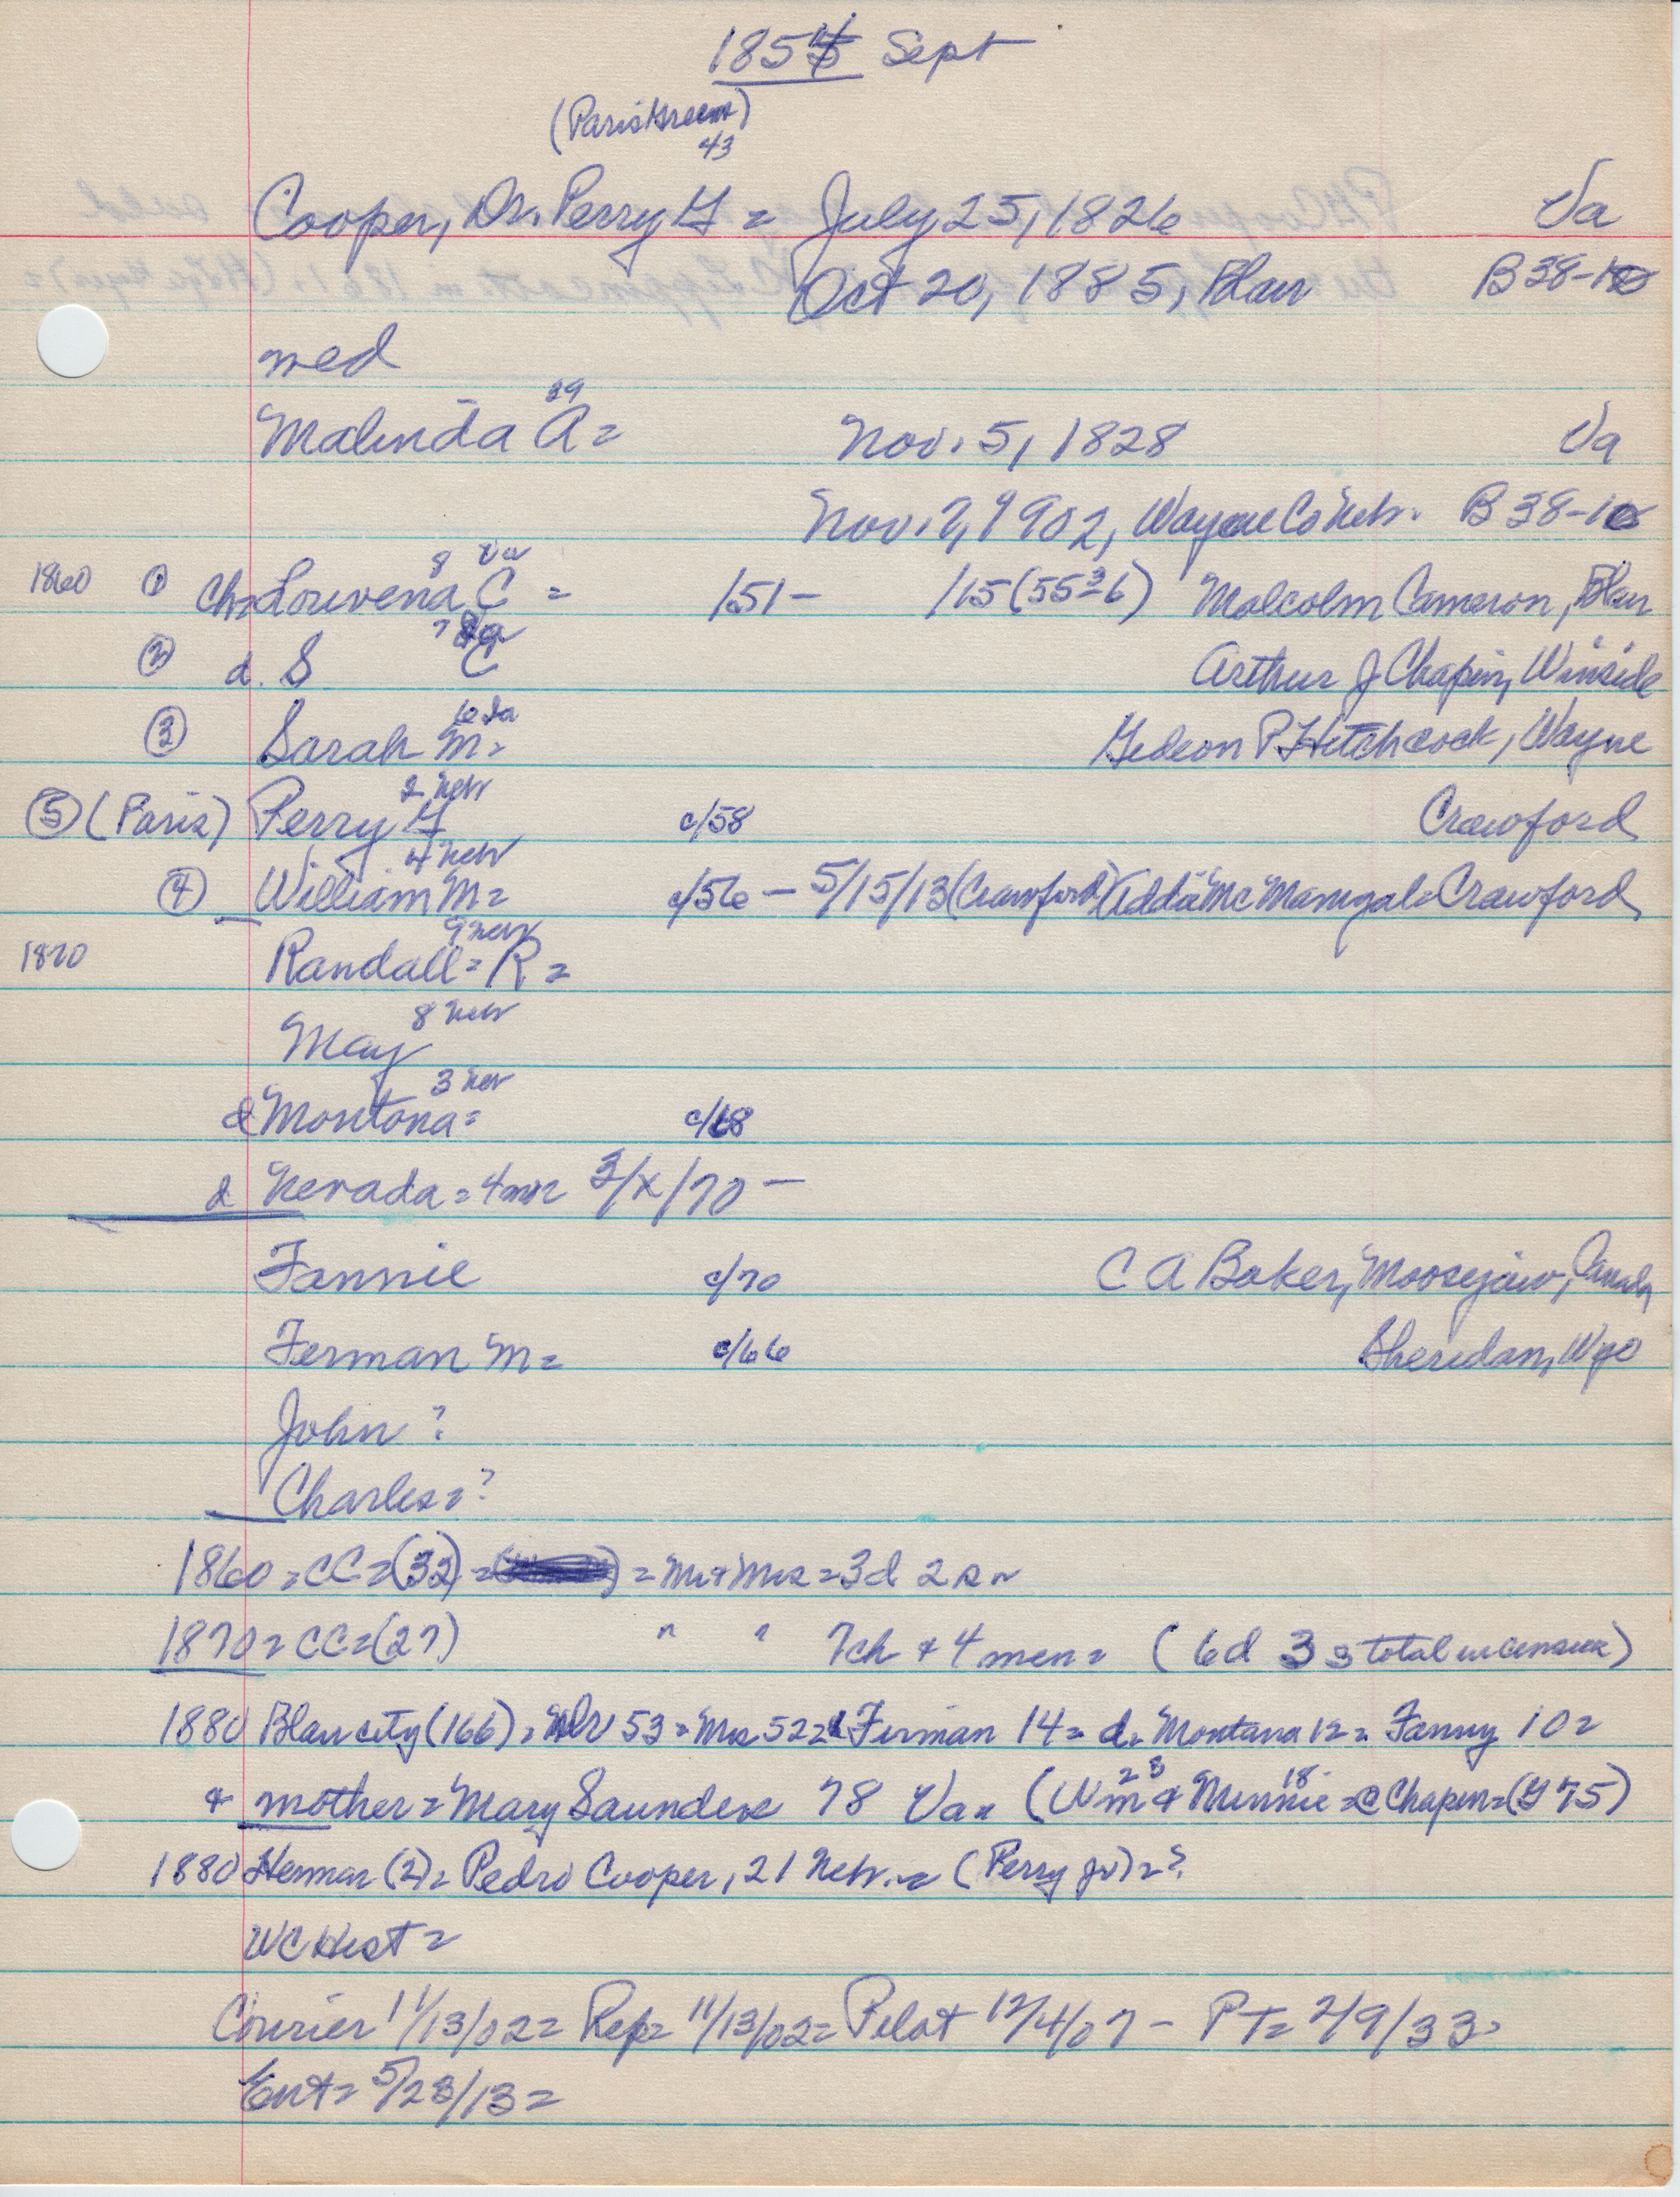 1854 Sept
(Paris Green)
43
Cooper, Dr. Perry G = July 25, 1826 Va
Oct 20, 1885, Blair B38-10
med
39
Malinda A = Nov. 5, 1828 Va
Nov. 7, 1902, Wayne Co Neb. B38-10
8 Va
1860 ① Ch = Louvena C = /51 - /15 (55=36) Malcolm Cameron, Blair
7 Va
② d. S C Arthur J Chapin, Winside
6 Ia
③ Sarah M = Gedeon P Hitchcock, Wayne
2 Neb
⑤ (Paris) Perry G c/58 Crawford
4 Neb
④ William M = c/56 - 5/15/13 (Crawford) Addie McMangal = Crawford
9 Neb
1870 Randall = R =
8 Neb
May
3 Neb
d Montana = c/68
d Nevada = 4 mo 3/x/70 -
Fannie c/70 C A Baker, Moosejaw, Canada
Ferman M = c/66 Sheridan, Wyo
John ?
Charles = ?
1860 = CC = (32) = = Mr & Mrs = 3d 2 s =
1870 = CC = (27) " " 7ch & 4 men = (6d 3 s total in census)
1880 Blair city (166) = Dr 53 = Mrs 52 = Ferman 14 = d = Montana 12 = Fanny 10 =
23 18
& mother = Mary Saunders 78 Va = (Wm & Minnie = @ Chapin = (G 75)
1880 Herman (2) = Pedro Cooper, 21 Neb. = (Perry Jr) = ?
WC Hist =
Courier 11/13/02 = Rep = 11/13/02 = Pilot 12/4/07 - PT = 2/9/33 =
Ent = 5/23/13 =